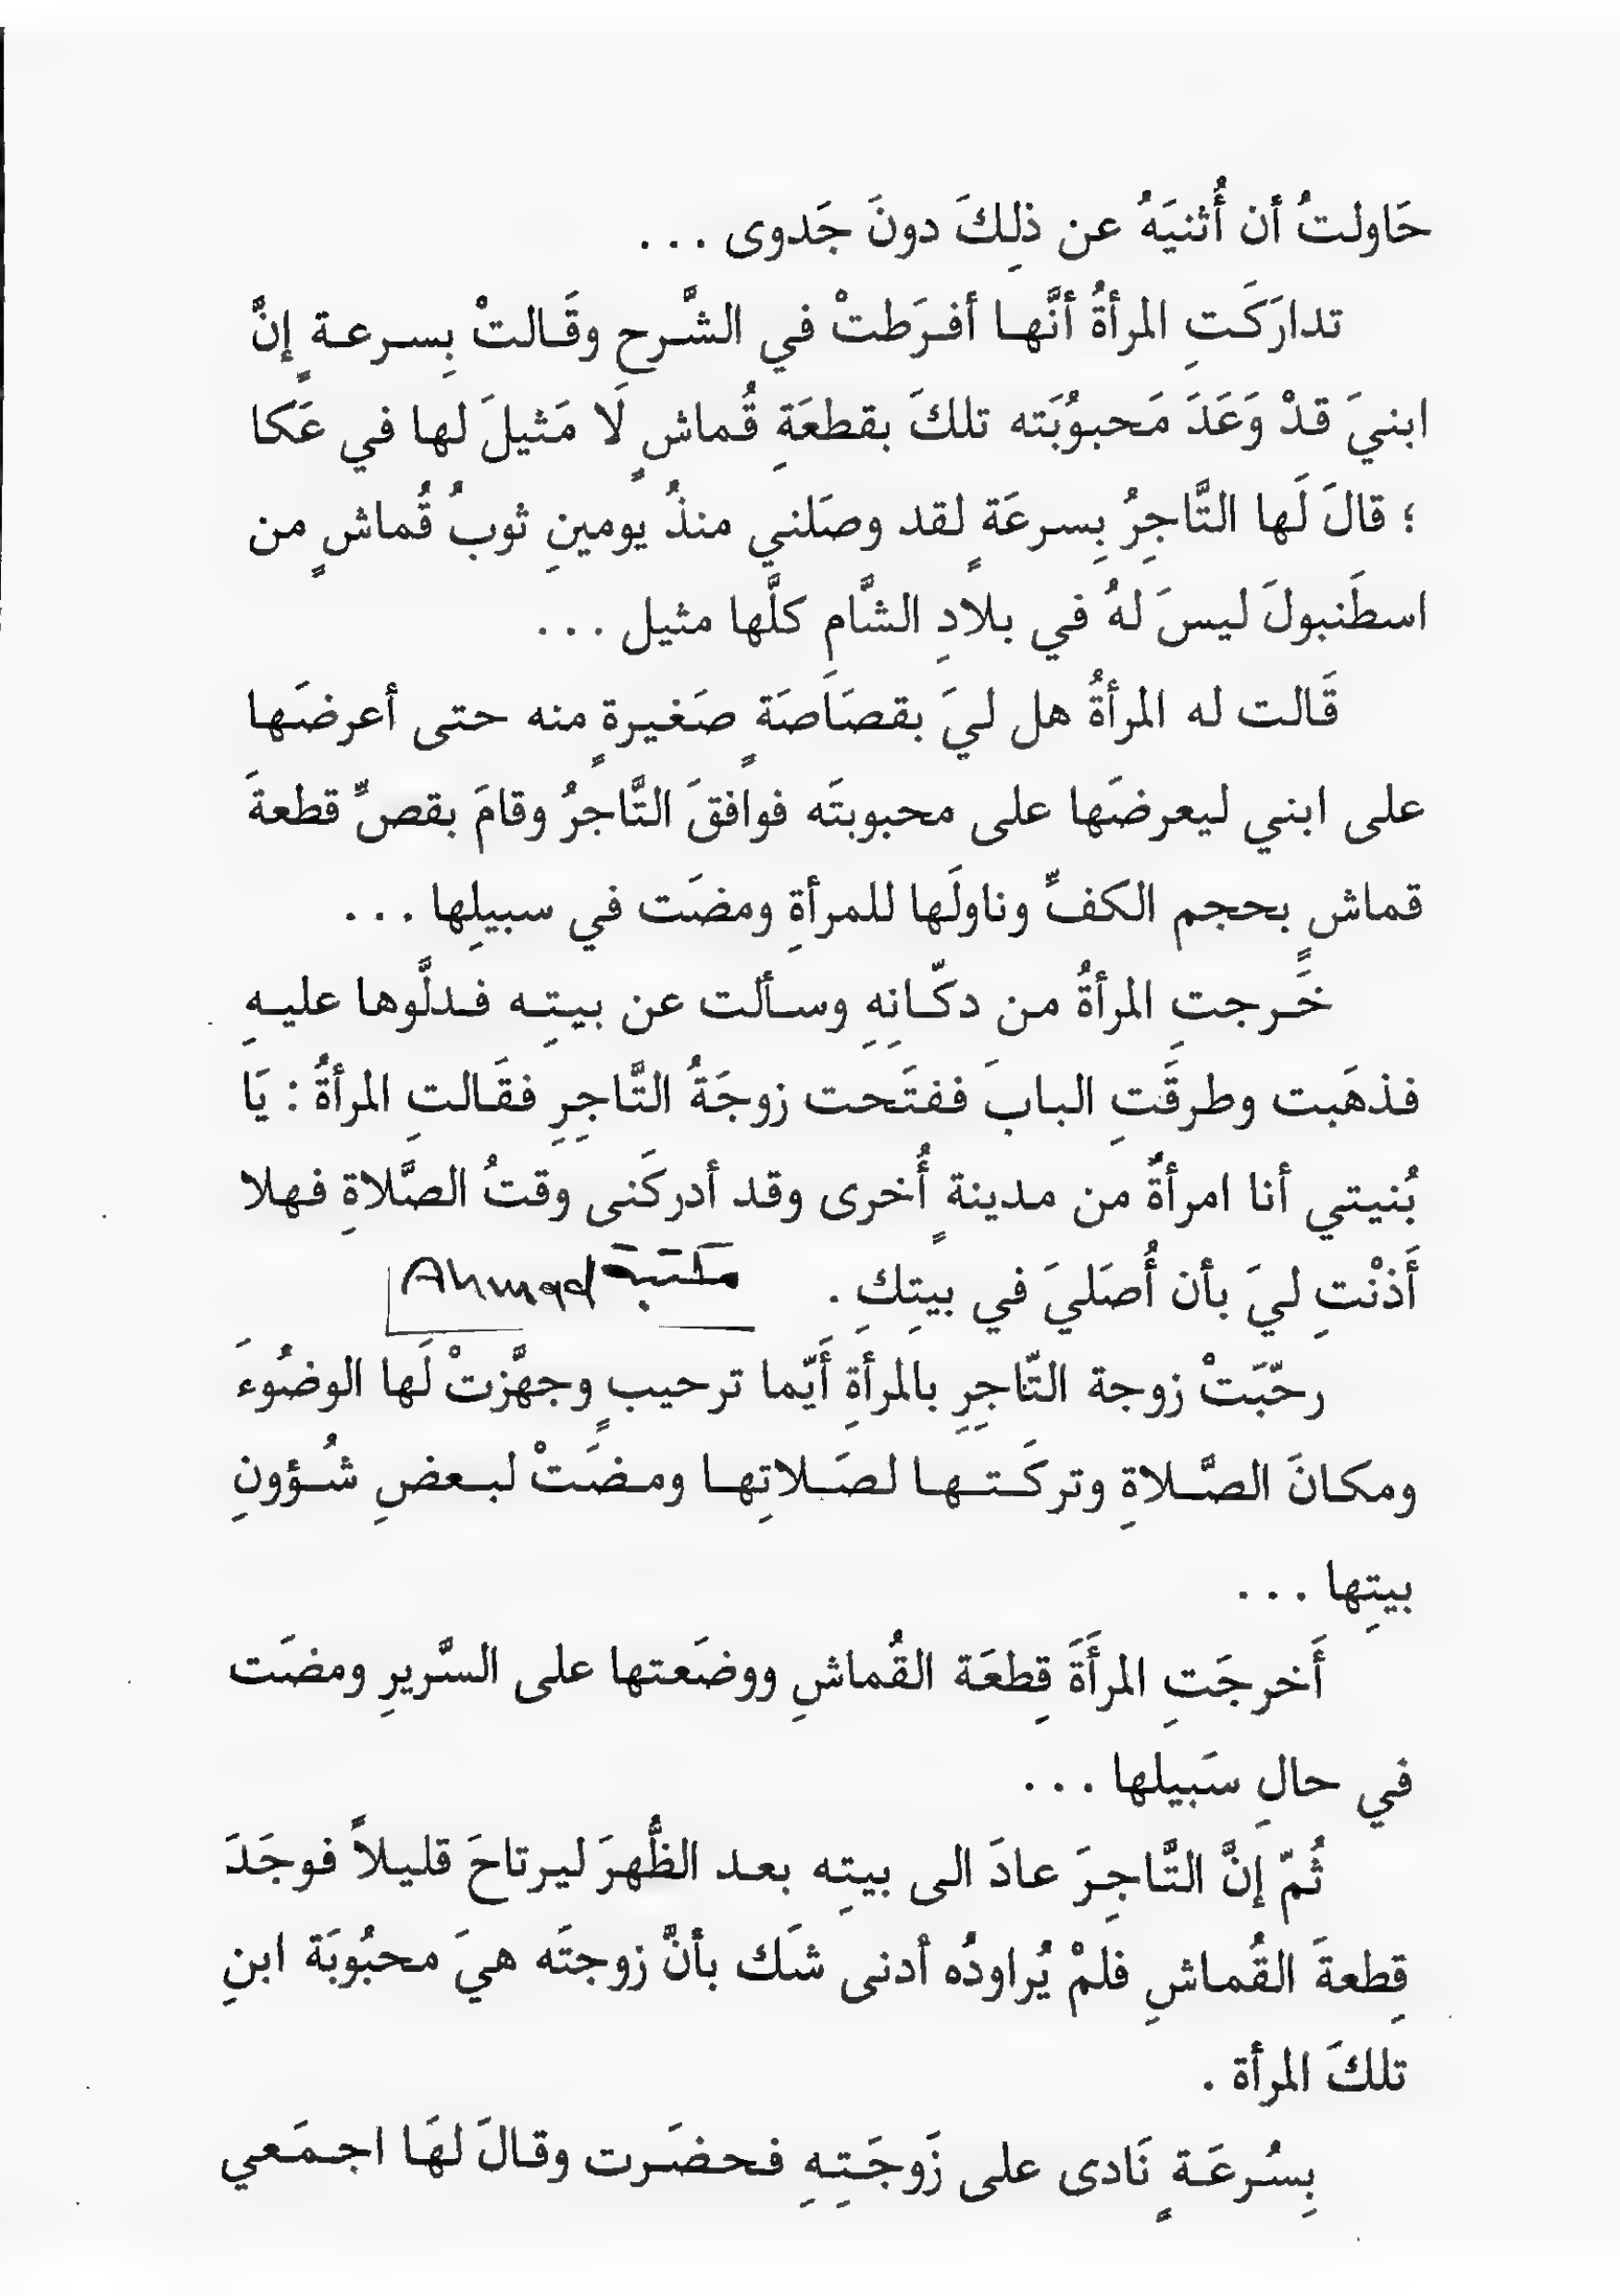 حَاولتُ أن أُثنيَهُ عن ذلِكَ دونَ جَدوى . . .
تدارَكَتِ المرأةُ أنَّها أفرَطتْ في الشَّرحِ وقَالتْ بِسرعةٍ إنَّ
ابنيَ قدْ وَعَدَ مَحبوُبَته تلكَ بقطعَةِ قُماشٍ لَا مَثيلَ لها في عَكا
؛ قالَ لَها التَّاجِرُ بِسرعَةٍ لقد وصَلني منذُ يومينِ ثوبُ قُماشٍ من
اسطَنبولَ ليسَ لهُ في بلادِ الشَّام كلَّها مثيل . . .
قَالت له المرأةُ هل ليَ بقصَاصَةٍ صَغيرةٍ منه حتى أعرضَها
على ابني ليعرضَها على محبوبتَه فوافقَ التَّاجرُ وقامَ بقصٍّ قطعةَ
قماشٍ بحجم الكفِّ وناولَها للمرأةِ ومضَت في سبيلِها . . .
خَرجتِ المرأةُ من دكّانِهِ وسألت عن بيتِه فدلَّوها عليهِ
فذهَبت وطرقَتِ البابَ ففتَحت زوجَةُ التَّاجِرِ فقَالتِ المرأةُ : يَا
بُنيتي أنا امرأةٌ من مدينةٍ أُخرى وقد أدركَنى وقتُ الصَّلاةِ فهلا
أَذنْتِ ليَ بأن أُصَليَ في بيتِكِ . مكتبة Ahmad
رحّبَتْ زوجة التّاجِرِ بالمرأةِ أَيّما ترحيبٍ وجهَّزتْ لَها الوضُوءَ
ومكانَ الصَّلاةِ وتركَتها لصَلاتِها ومضَتْ لبعضِ شُؤونِ
بيتِها . . .
أَخرجَتِ المرأَةَ قِطعَة القُماشِ ووضَعتها على السَّريرِ ومضَت
في حالِ سَبيلها . . .
ثُمّ إنَّ التَّاجِرَ عادَ الى بيتِه بعد الظُّهرَ ليرتاحَ قليلاً فوجَدَ
قِطعةَ القُماشِ فلمْ يُراودُه أدنى شَك بأنَّ زوجتَه هيَ محبُوبَة ابنِ
تلكَ المرأة .
بِسُرعَةٍ نَادى على زَوجَتِهِ فحضَرت وقالَ لهَا اجمَعي